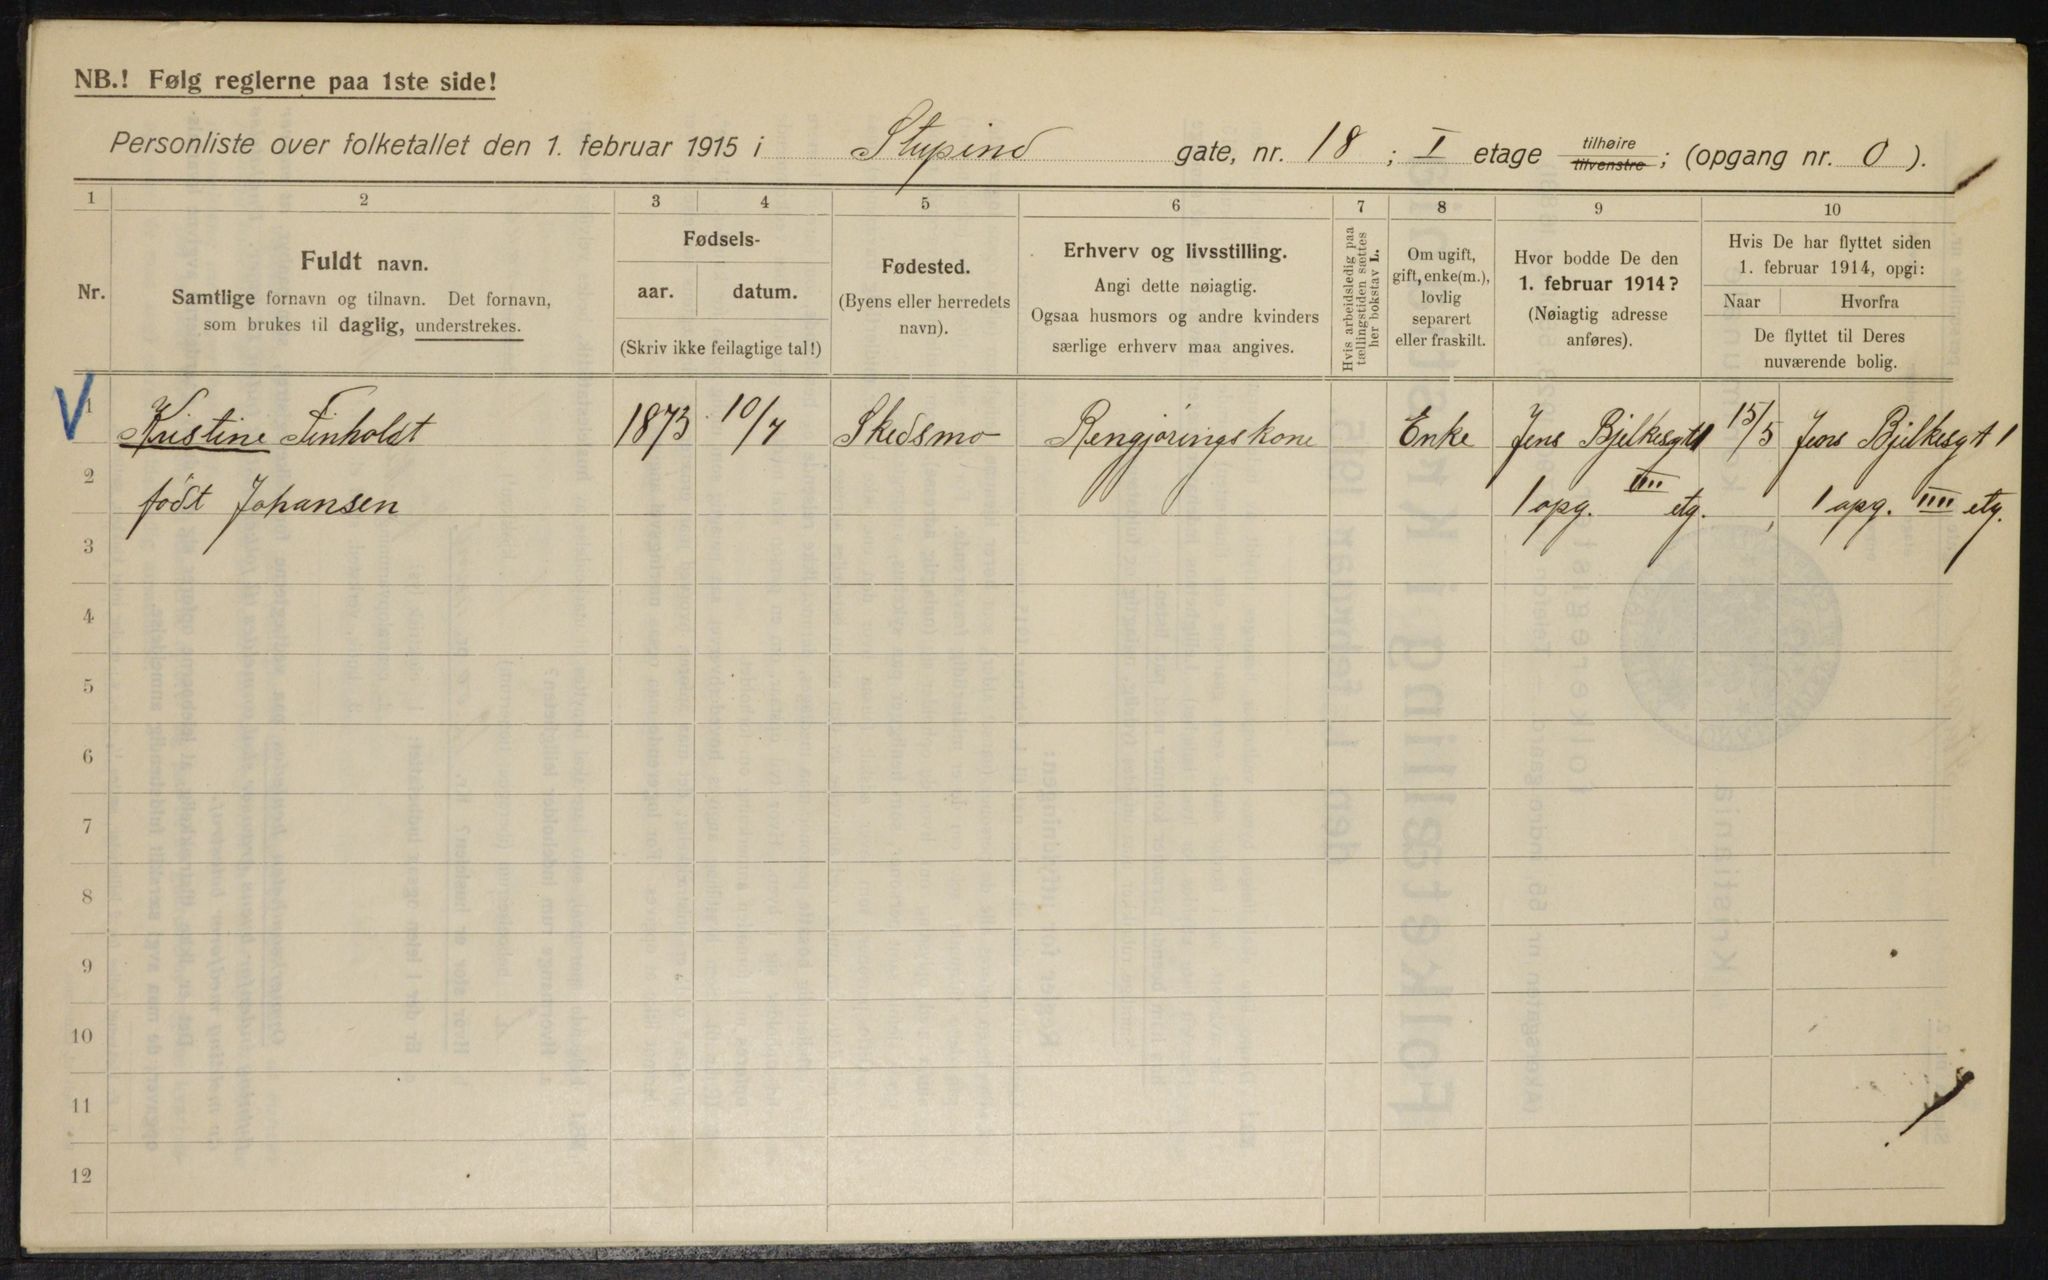 NB.! Følg reglerne paa 1ste side!
Personliste over folketallet den 1. februar 1915 i Stupind gate, nr. 18 ; I etage tilhøire tilvenstre ; (opgang nr. 0 ).
1 2 3 4 5 6 7 8 9 10
Nr.
Fuldt navn.
Samtlige fornavn og tilnavn. Det fornavn,
som brukes til daglig, understrekes.
Fødsels-
aar. datum.
(Skriv ikke feilagtige tal!)
Fødested.
(Byens eller herredets
navn).
Erhverv og livsstilling.
Angi dette nøiagtig.
Ogsaa husmors og andre kvinders
særlige erhverv maa angives.
Hvis arbeidsledig paa
tællingstiden sættes
her bokstav L.
Om ugift,
gift, enke(m.),
lovlig
separert
eller fraskilt.
Hvor bodde De den
1. februar 1914?
(Nøiagtig adresse
anføres).
Hvis De har flyttet siden
1. februar 1914, opgi:
Naar Hvorfra
De flyttet til Deres
nuværende bolig.
V
1 Kristine Finholdt 1873 10/7 Skedsmo Rengjøringskone Enke Jens Bjelkesgt 1 15/5 Jens Bjelkesgt 1
2 født Johansen 1 opg. IIII etg. , 1 opg. IIII etg.
3
4
5
6
7
8
9
10
11
12